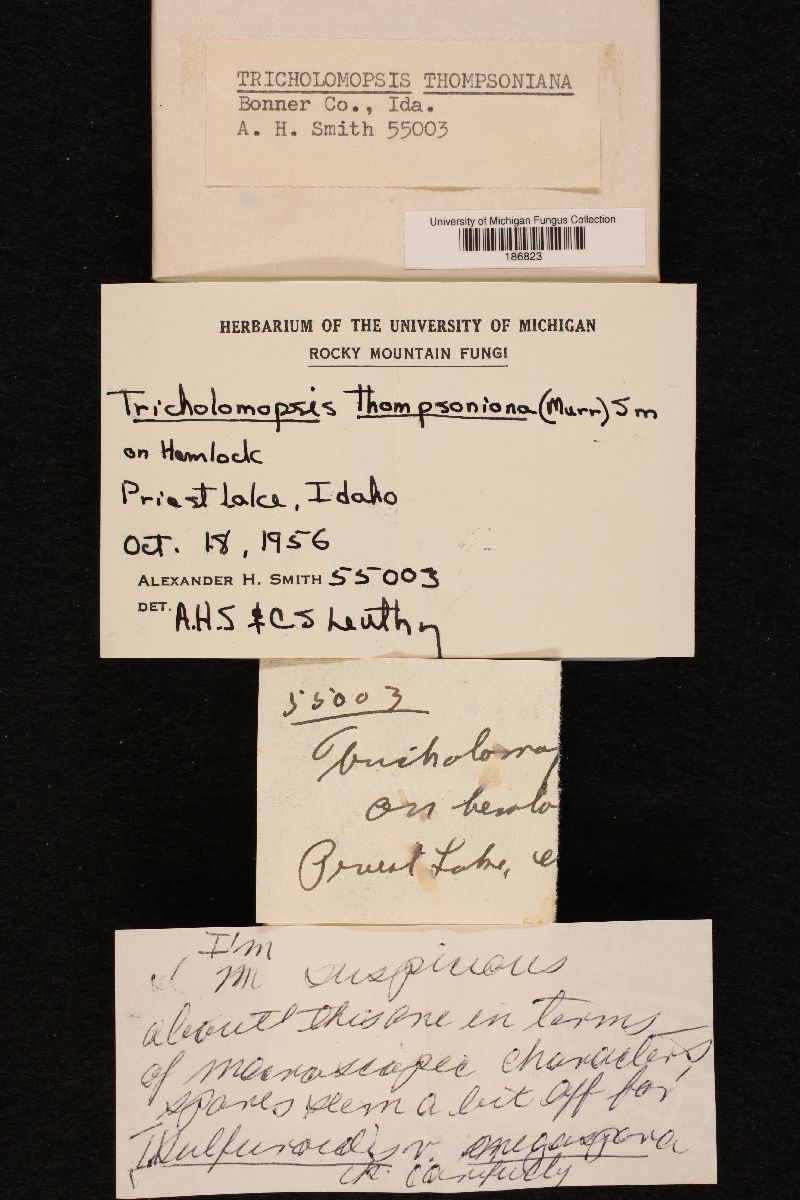 TRICHOLOMOPSIS THOMPSONIANA
Bonner Co., Ida.
A. H. Smith 55003
University of Michigan Fungus Collection
186823
HERBARIUM OF THE UNIVERSITY OF MICHIGAN
ROCKY MOUNTAIN FUNGI
Tricholomopsis thompsoniana (Murr) Sm
on Hemlock
Priest Lake, Idaho
Oct. 18, 1956
ALEXANDER H. SMITH 55003
DET. A.H.S & C S Leuthy
55003
Tricholomop
on hemlo
Priest Lake,
I'm
suspicious
about this one in terms
of macroscopic characters,
spores seem a bit off for
T. sulfuroides v. megaspora
ck carefully